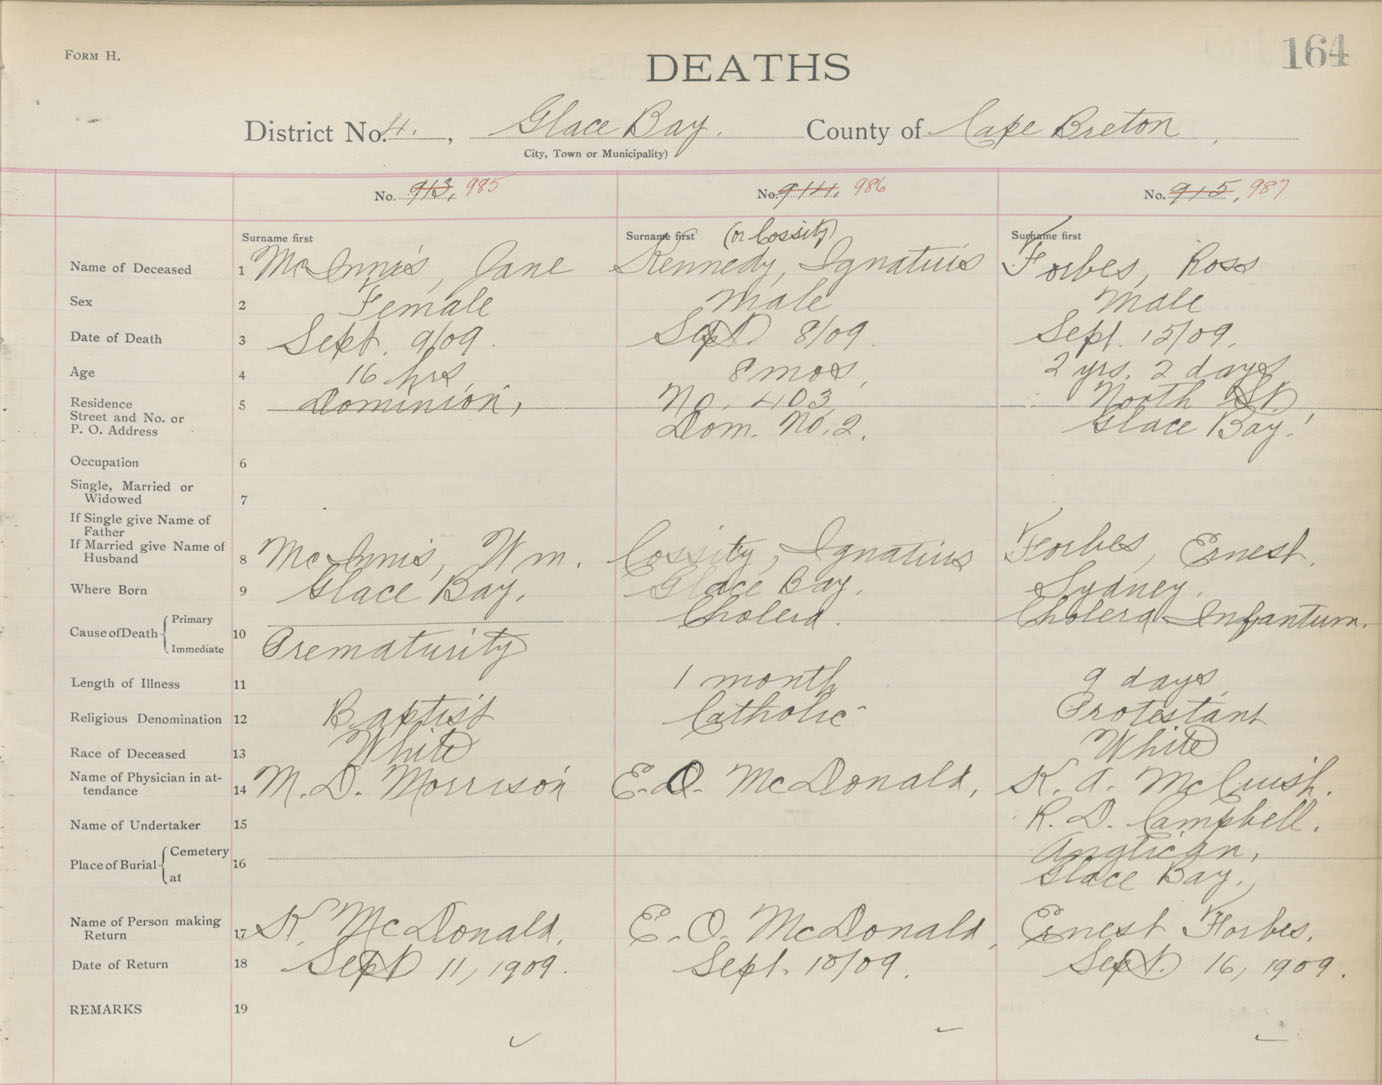 FORM H.
164
DEATHS
District No. 4. , Glace Bay. County of Cape Breton ,
City, Town or Municipality)
No. 913, 985
No. 914, 986
No. 915, 987
Surname first
Surname first (or Cossity)
Surname first
Name of Deceased 1 McInnis, Jane Kennedy, Ignatius Forbes, Ross
Sex 2 Female Male Male
Date of Death 3 Sept. 9/09. Sept 8/09. Sept. 15/09.
Age 4 16 hrs, 8 mos, 2 yrs. 2 days
Residence 5 Dominion, No. 403 North St,
Street and No. or
P. O. Address Dom. No. 2. Glace Bay.
Occupation 6
Single, Married or
Widowed 7
If Single give Name of
Father
If Married give Name of
Husband 8 McInnis, Wm. Cossity, Ignatius Forbes, Ernest.
Where Born 9 Glace Bay. Glace Bay. Sydney.
Cause of Death { Primary Cholera. Cholera Infantum.
10
Immediate Prematurity
Length of Illness 11 1 month 9 days,
Religious Denomination 12 Baptist Catholic Protestant
Race of Deceased 13 White White
Name of Physician in at-
tendance 14 M. D. Morrison E. O. McDonald, K. A. McCuish.
Name of Undertaker 15 R. D. Campbell.
Place of Burial { Cemetery 16 Anglican,
at Glace Bay.,
Name of Person making
Return 17 K. McDonald. E. O. McDonald, Ernest Forbes.
Date of Return 18 Sept 11, 1909. Sept. 10/09. Sept. 16, 1909.
REMARKS 19